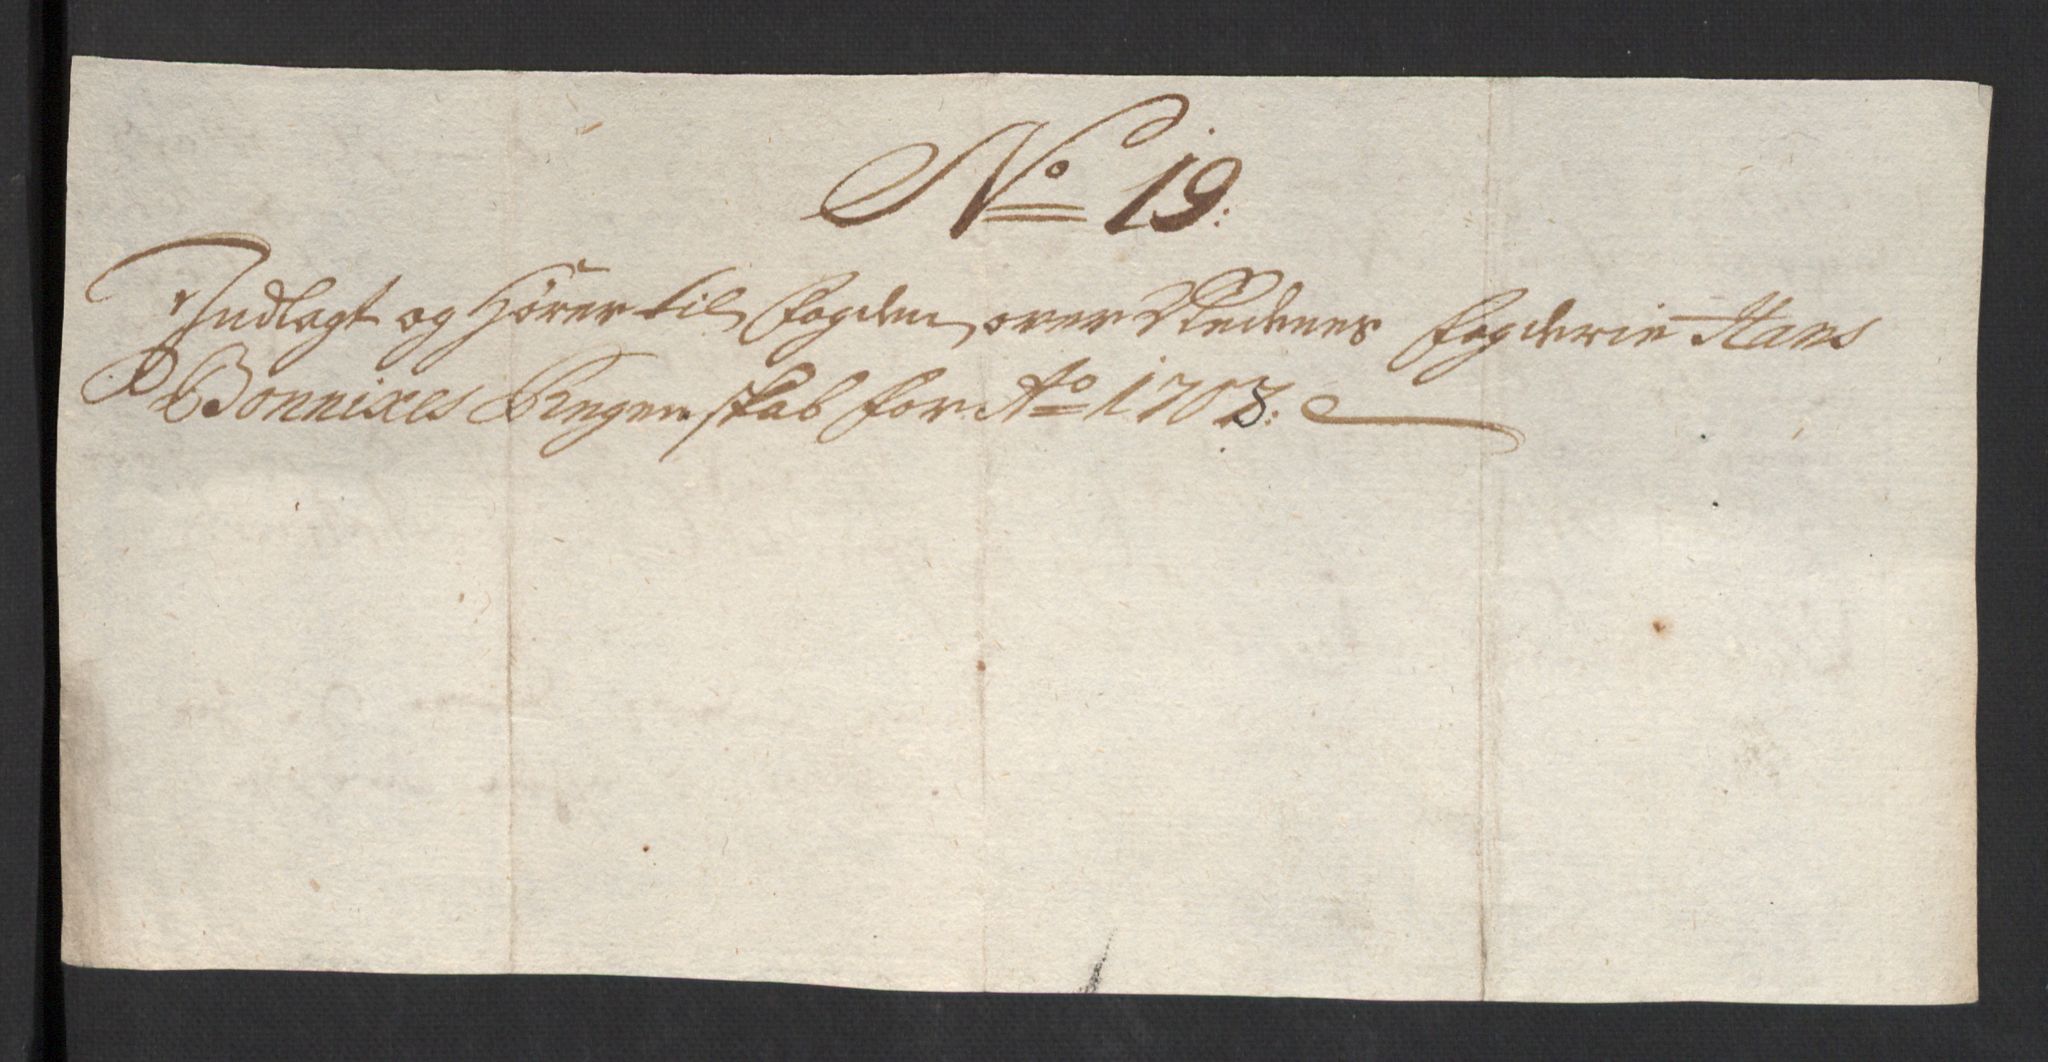 No 19:
Indlagt og Hører til Fogden over Nedenes Fogderie Hans
Bonnixes Regenskab for Ao 1703: